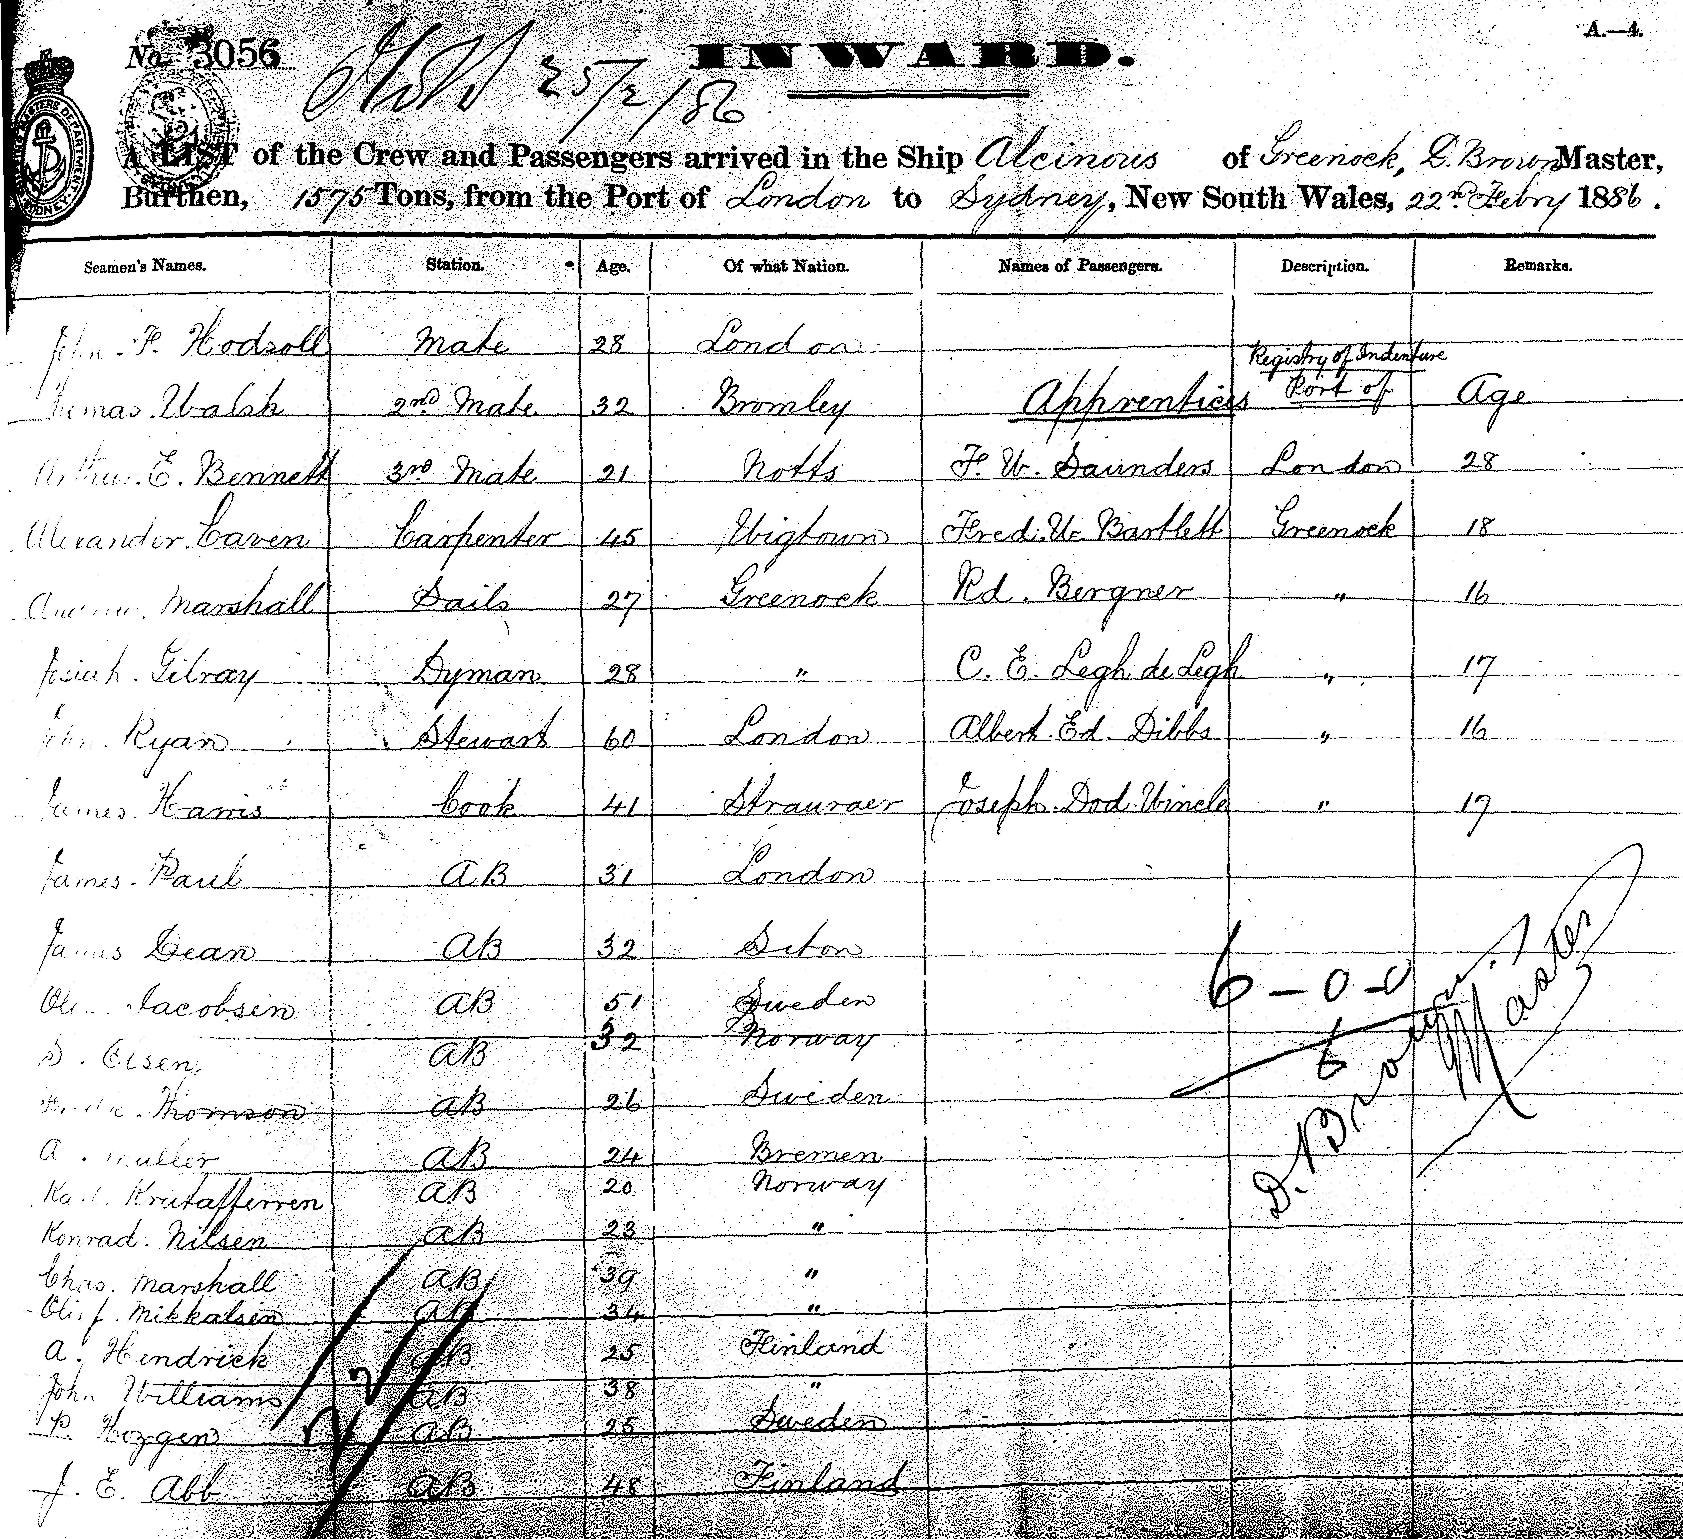 A.—4.
No. 3056
INWARD.
25/2/86
A LIST of the Crew and Passengers arrived in the Ship Alcinous of Greenock, D. Brown Master,
Burthen, 1575 Tons, from the Port of London to Sydney, New South Wales, 22nd Febry 1886.
Seamen's Names. Station. Age. Of what Nation. Names of Passengers. Description. Remarks.
John F. Hodsoll Mate 28 London
Registry of Indenture
Thomas Walsh 2nd Mate 32 Bromley Apprentices Port of Age
Arthur E. Bennett 3rd Mate 21 Notts F. W. Saunders London 28
Alexander Caven Carpenter 45 Wigtown Fred. W. Bartlett Greenock 18
Marshall Sails 27 Greenock Rd. Bergner " 16
Josiah Gilray Dyman 28 " C. E. Legh de Legh " 17
John Ryan Stewart 60 London Albert Ed. Dibbs " 16
James Harris Cook 41 Strauraer Joseph Dod Wincle " 17
James Paul AB 31 London
James Dean AB 32
Jacobsen AB 51 Sweden
S. Olsen AB 32 Norway
6-0-0
6
D. Brown Master
Thomson AB 26 Sweden
A. Muller AB 24 Bremen
Karl AB 20 Norway
Konrad Nilsen AB 23 "
Chas. Marshall AB 39 "
Mikkalsen AB 34 "
A. Hendrick AB 25 Finland
John Williams AB 38 "
P. Hozgen AB 25 Sweden
J. E. Abb AB 48 Finland